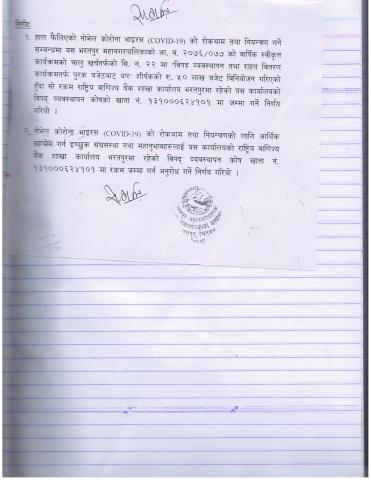 निर्णयः
१. हाल फैलिएको नोभेल कोरोना भाइरस (COVID-19) को रोकथाम तथा नियन्त्रण गर्ने
सम्बन्धमा यस भरतपुर महानगरपालिकाको आ. ब. २०७६/०७७ को बार्षिक स्वीकृत
कार्यक्रमको चालु खर्चतर्फको सि. नं. २२ मा "विपद व्यवस्थापन तथा राहत वितरण
कार्यक्रमतर्फ पुरक बजेटबाट थप" शीर्षकको रु. ५० लाख बजेट विनियोजन गरिएको
हुँदा सो रकम राष्ट्रिय बाणिज्य बैंक शाखा कार्यालय भरतपुरमा रहेको यस कार्यालयको
विपद् व्यवस्थापन कोषको खाता नं. १३१०००६२४१०१ मा जम्मा गर्ने निर्णय
गरियो ।
२. नोभेल कोरोना भाइरस (COVID-19) को रोकथाम तथा नियन्त्रणको लागि आर्थिक
सहयोग गर्न इच्छुक संघसंस्था तथा महानुभावहरुलाई यस कार्यालयको राष्ट्रिय बाणिज्य
बैंक शाखा कार्यालय भरतपुरमा रहेको विपद् व्यवस्थापन कोष खाता नं.
१३१०००६२४१०१ मा रकम जम्मा गर्न अनुरोध गर्ने निर्णय गरियो ।